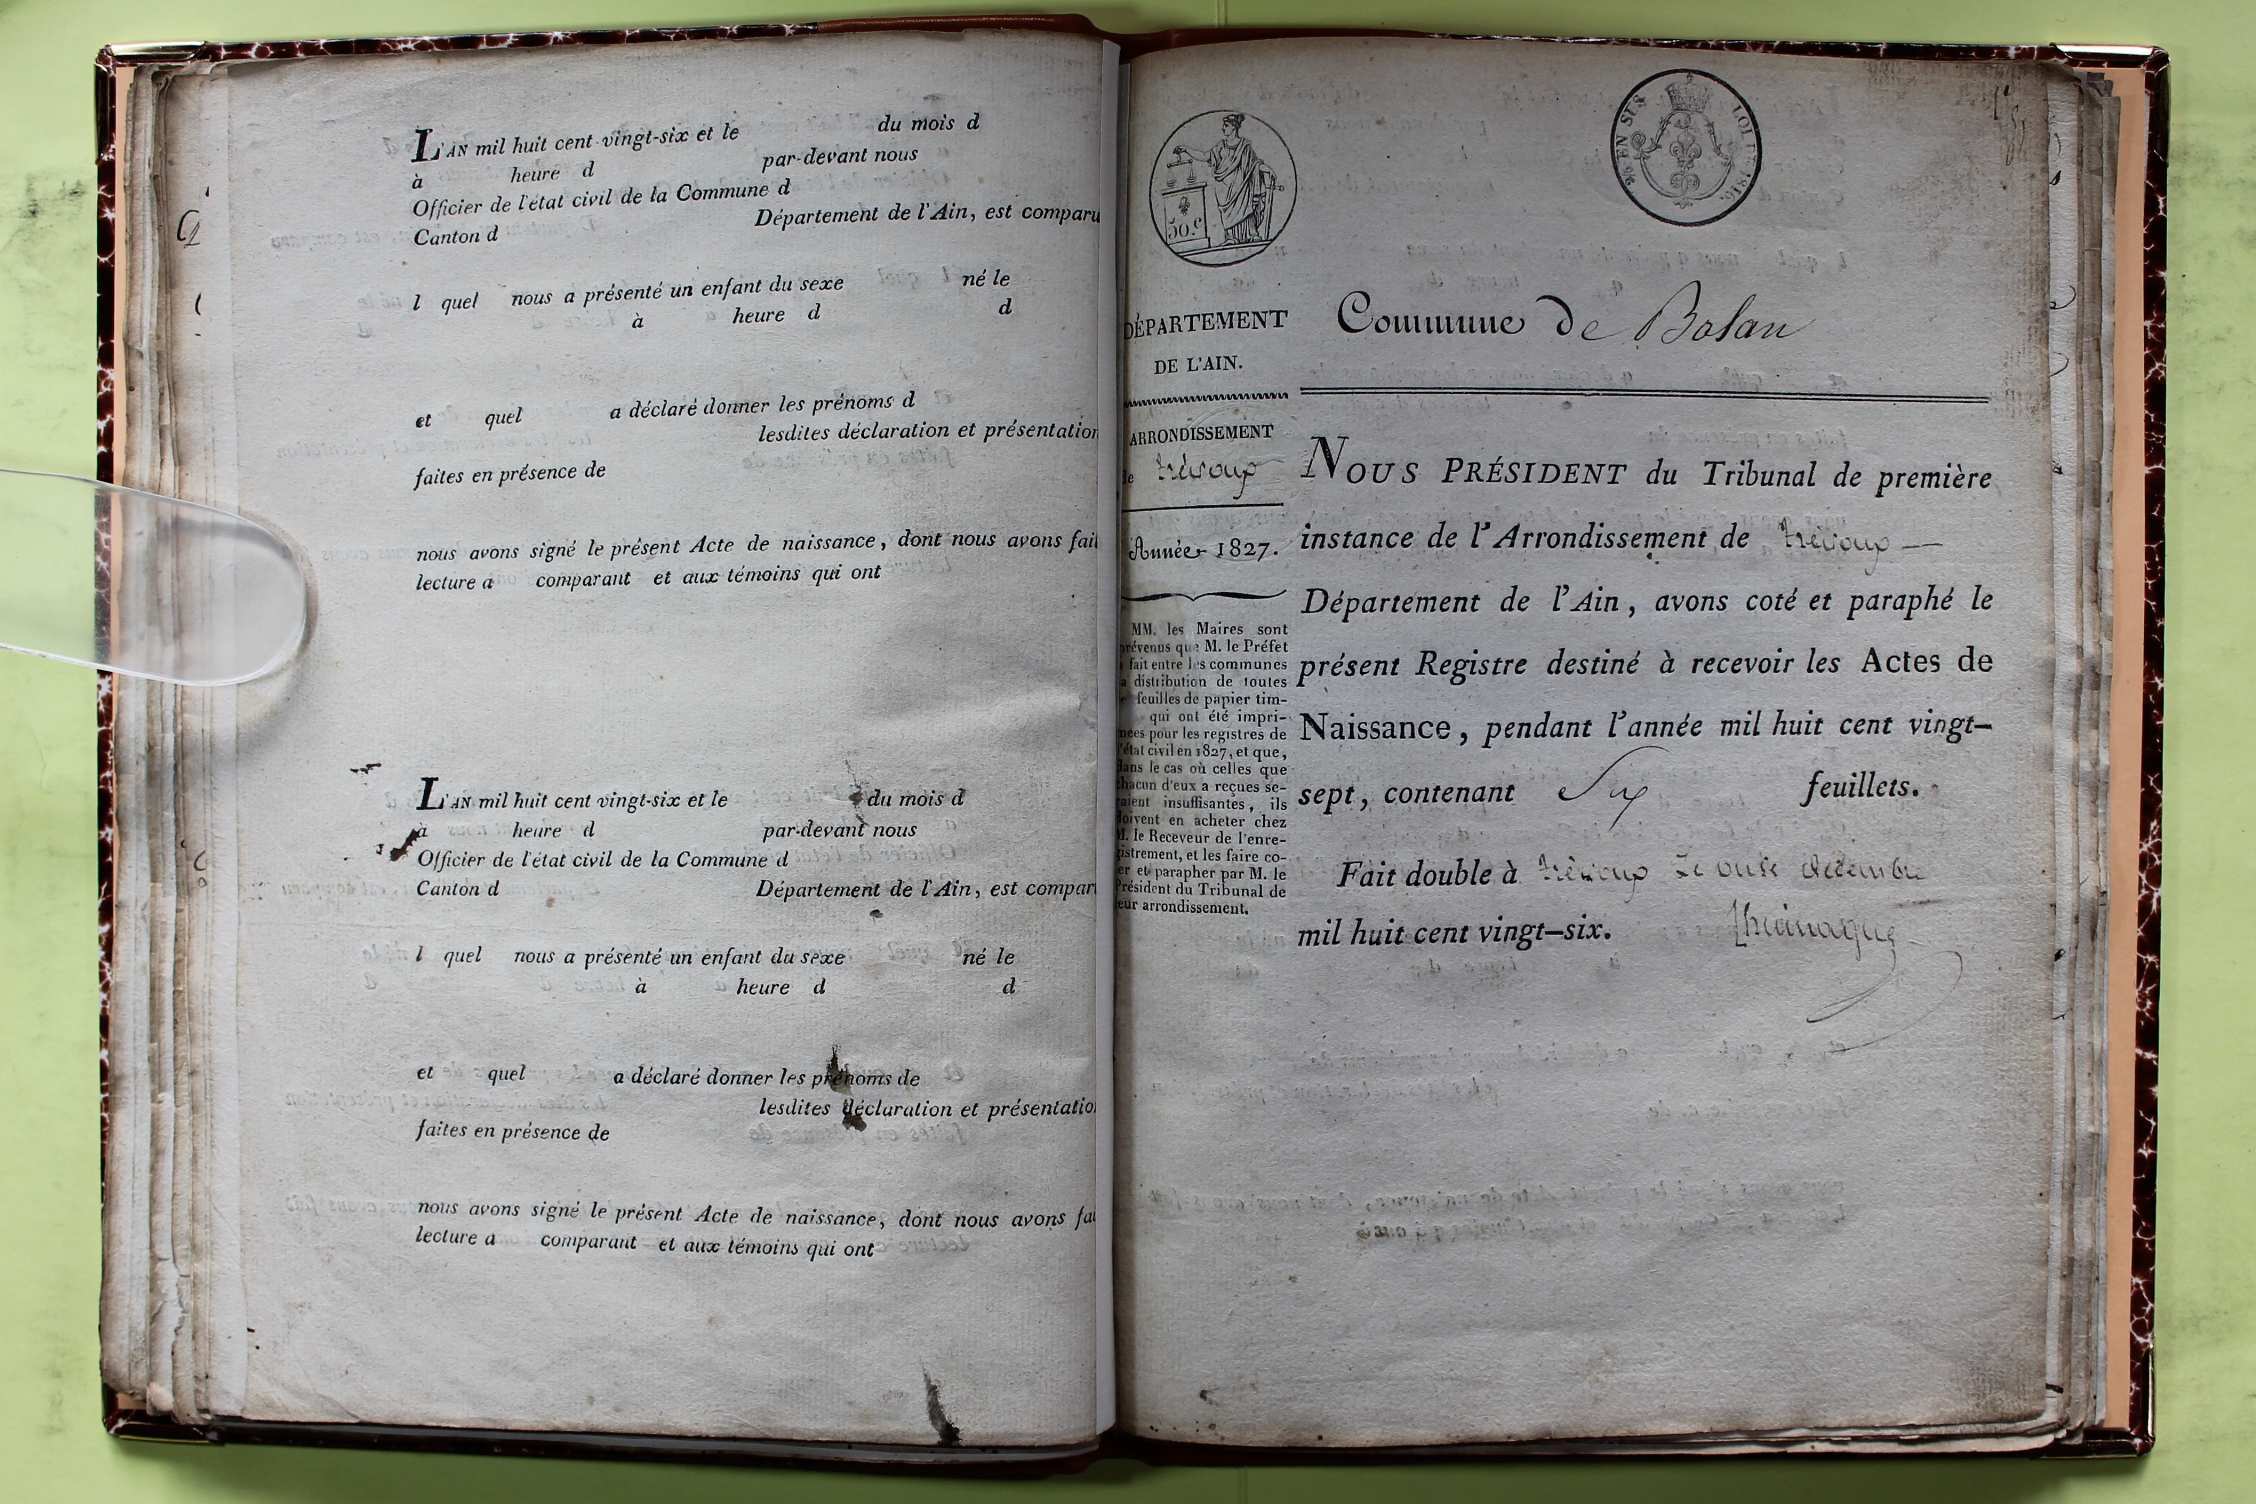 L'AN mil huit cent vingt-six et le du mois d
à heure d par-devant nous
Officier de l'état civil de la Commune d
Canton d Département de l'Ain, est comparu
l quel nous a présenté un enfant du sexe né le
à heure d d
et quel a déclaré donner les prénoms d
lesdites déclaration et présentation
faites en présence de
nous avons signé le présent Acte de naissance, dont nous avons fait
lecture a comparant et aux témoins qui ont
L'AN mil huit cent vingt-six et le du mois d
à heure d par-devant nous
Officier de l'état civil de la Commune d
Canton d Département de l'Ain, est compar
l quel nous a présenté un enfant du sexe né le
à heure d d
et quel a déclaré donner les prénoms de
lesdites déclaration et présentatio
faites en présence de
nous avons signé le présent Acte de naissance, dont nous avons fai
lecture a comparant et aux témoins qui ont
50.c
EN SUS LOI DE 1816.
DÉPARTEMENT
DE L'AIN.
ARRONDISSEMENT
de trévoux
Année 1827.
MM. les Maires sont
prévenus que M. le Préfet
a fait entre les communes
la distribution de toutes
feuilles de papier tim-
qui ont été impri-
mées pour les registres de
l'état civil en 1827, et que,
dans le cas où celles que
chacun d'eux a reçues se-
raient insuffisantes, ils
doivent en acheter chez
M. le Receveur de l'enre-
gistrement, et les faire co-
ter et parapher par M. le
Président du Tribunal de
leur arrondissement.
Commune de Balan
NOUS PRÉSIDENT du Tribunal de première
instance de l'Arrondissement de trévoux —
Département de l'Ain, avons coté et paraphé le
présent Registre destiné à recevoir les Actes de
Naissance, pendant l'année mil huit cent vingt-
sept, contenant Six feuillets.
Fait double à trévoux Le onze décembre
mil huit cent vingt-six.